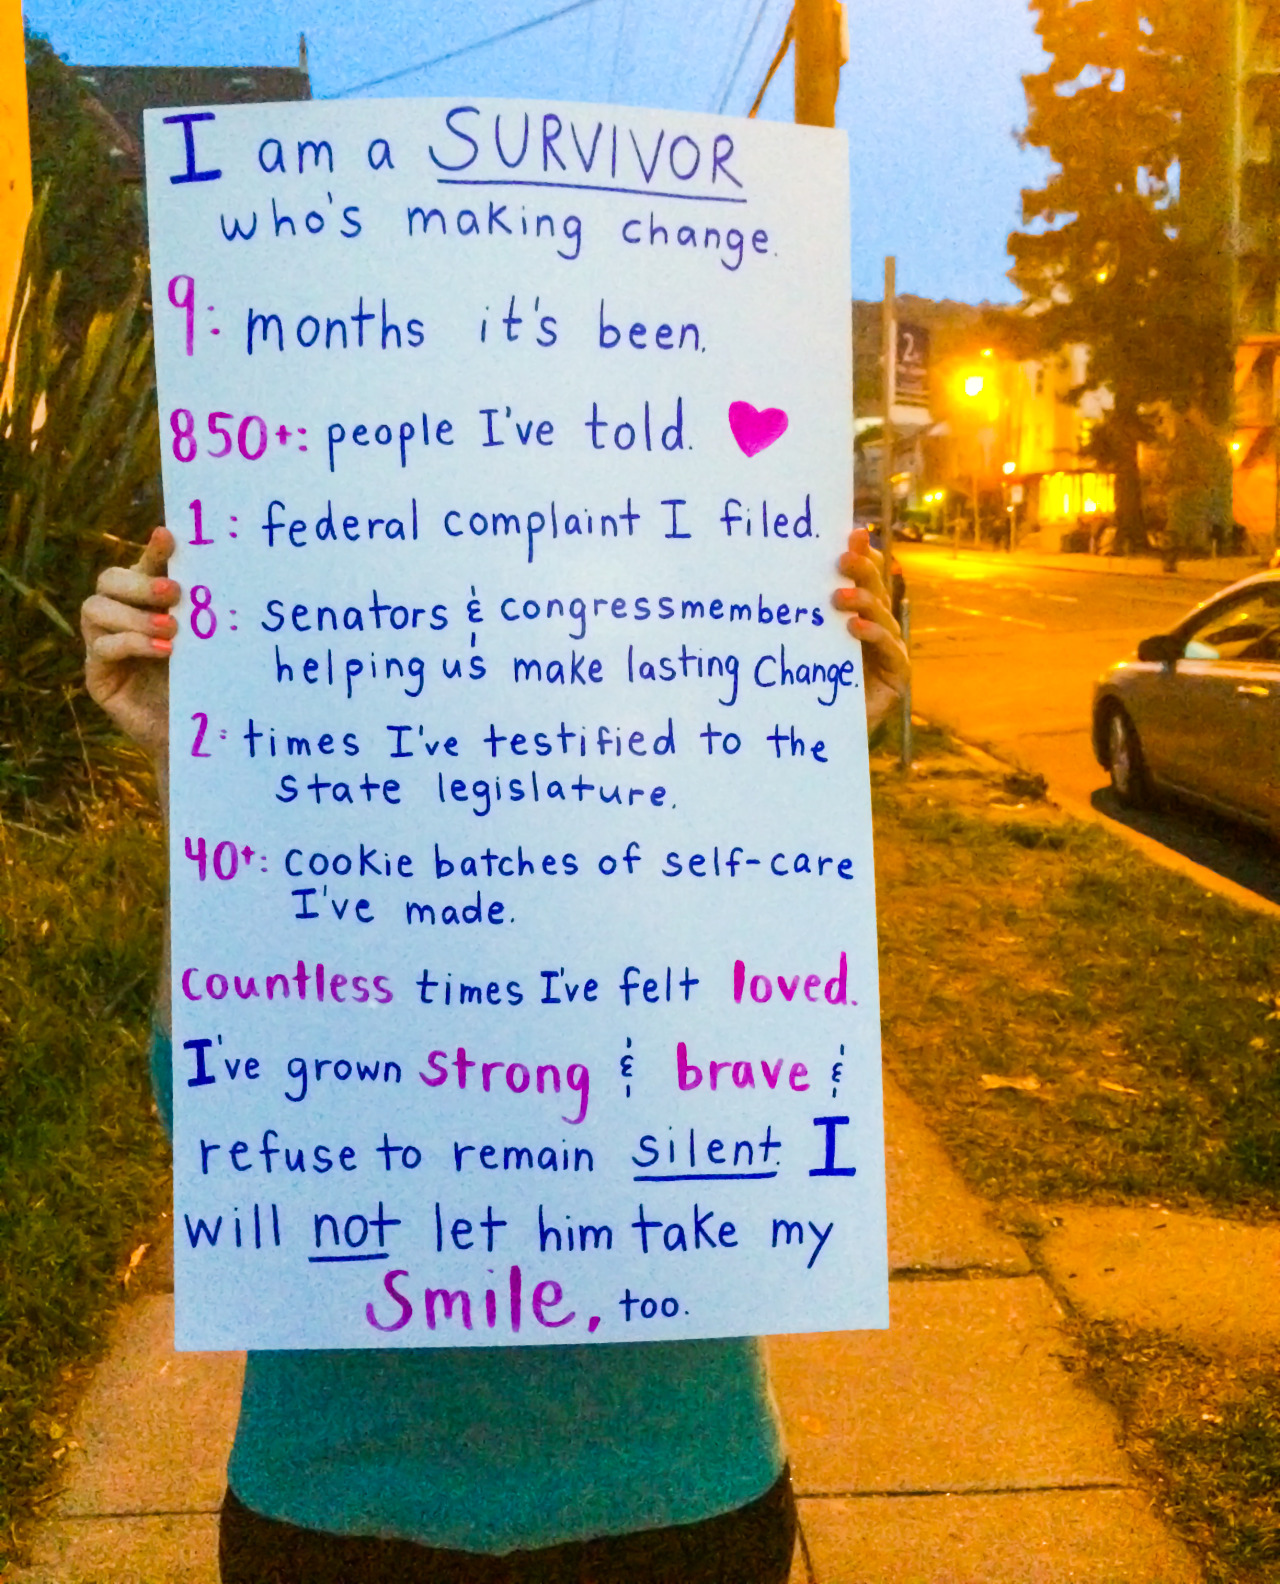 I am a SURVIVOR
who's making change.
9: months it's been.
850+: people I've told. ♥
1: federal complaint I filed.
8: senators & congressmembers
helping us make lasting change.
2: times I've testified to the
state legislature.
40+: cookie batches of self-care
I've made.
countless times I've felt loved.
I've grown strong & brave &
refuse to remain silent. I
will not let him take my
smile, too.
2